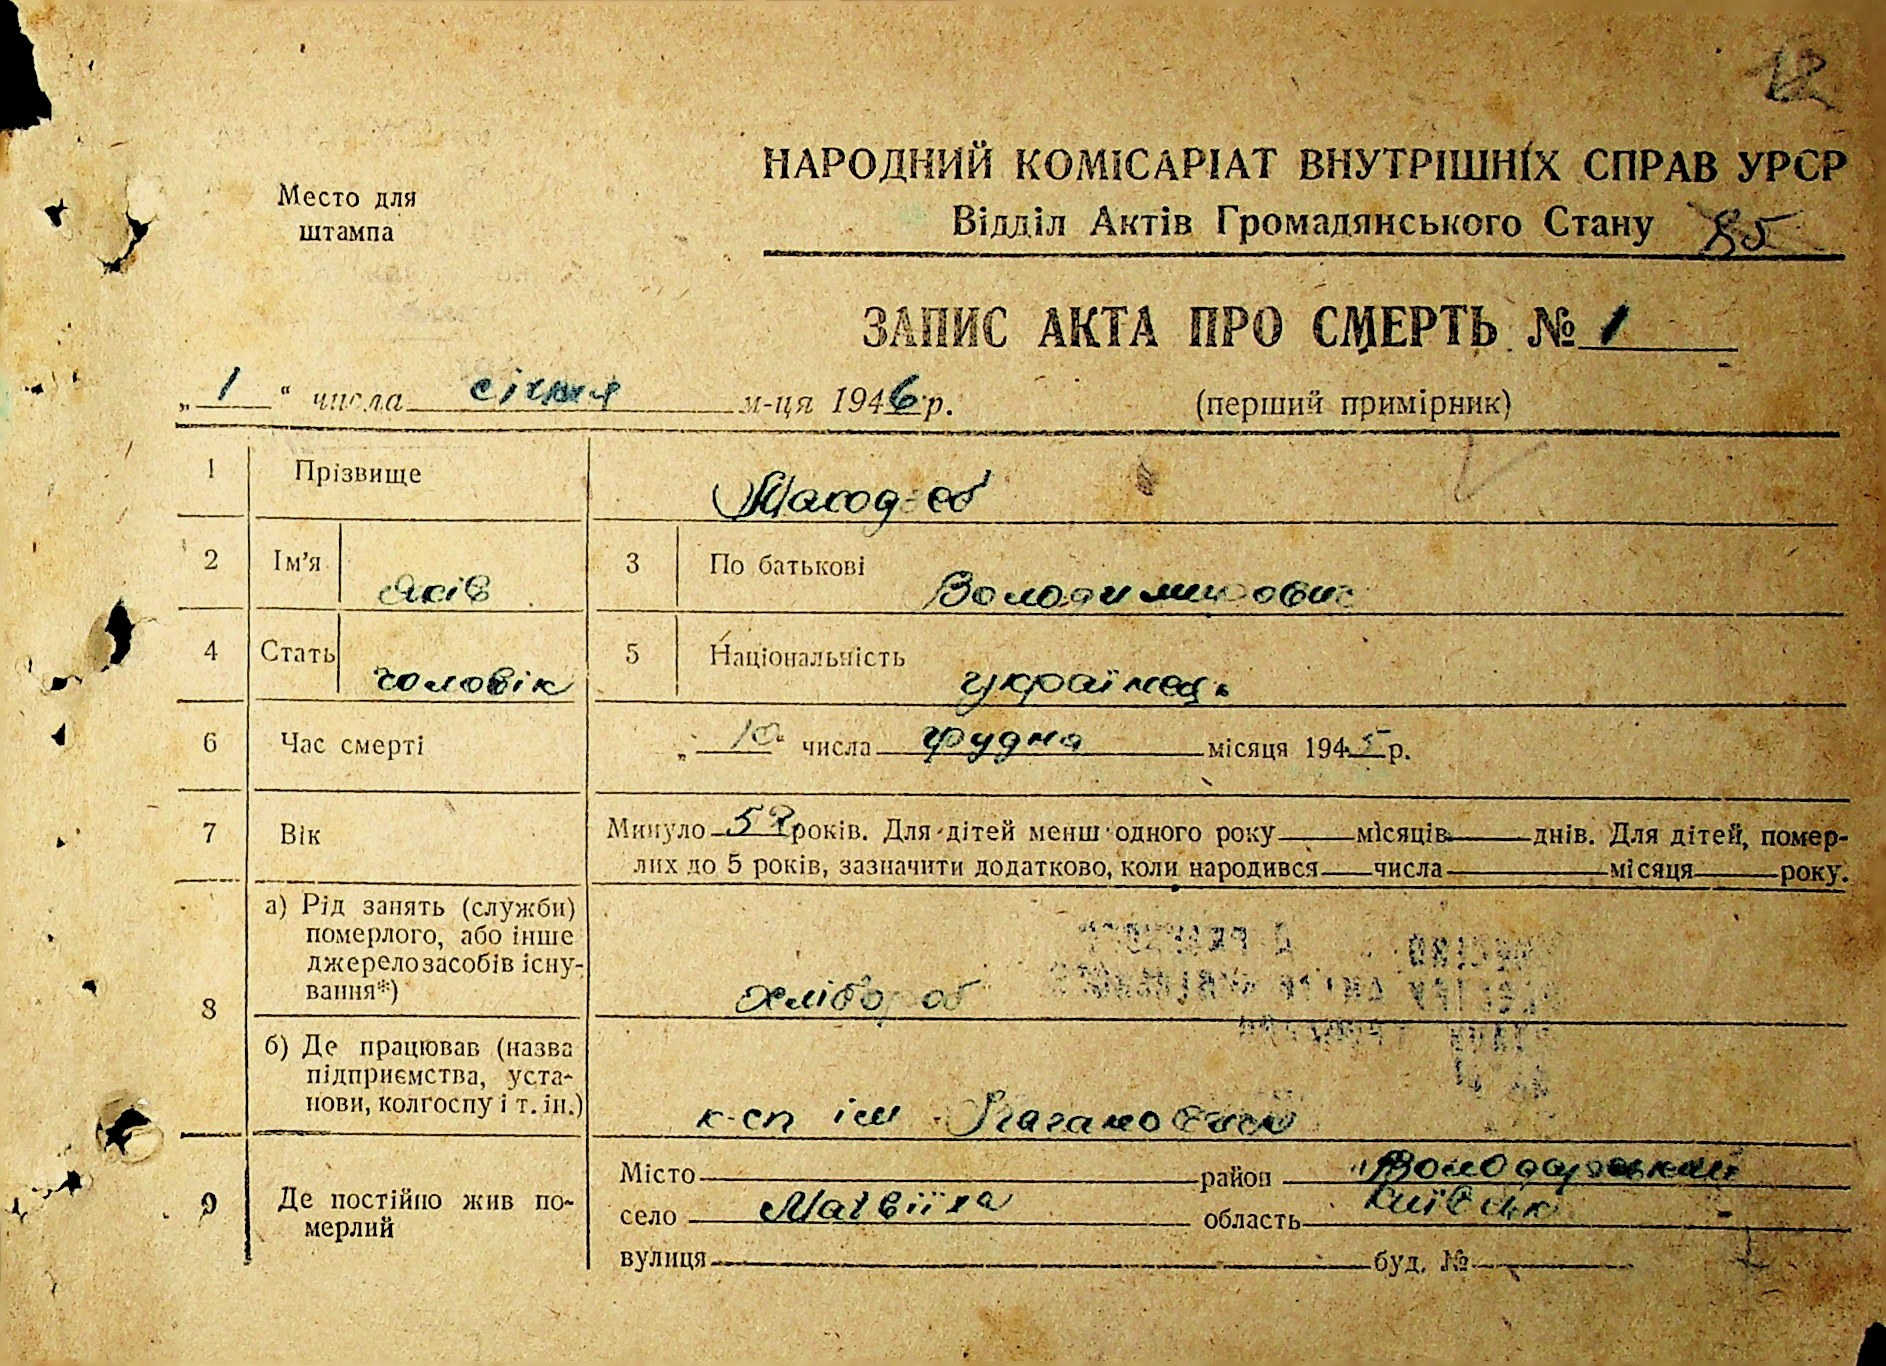 12
НАРОДНИЙ КОМІСАРІАТ ВНУТРІШНІХ СПРАВ УРСР
Место для штампа
Відділ Актів Громадянського Стану 85
ЗАПИС АКТА ПРО СМЕРТЬ № 1
„ 1 “ числа січня м-ця 1946 р. (перший примірник)
1 Прізвище
2 Ім'я Яків 3 По батькові Володимирович
4 Стать чоловік 5 Національність українець
6 Час смерті „ 10 “ числа грудня місяця 1945 р.
7 Вік Минуло 59 років. Для дітей менш одного року місяців днів. Для дітей, помер-
лих до 5 років, зазначити додатково, коли народився числа місяця року.
8 а) Рід занять (служби)
померлого, або інше
джерело засобів існу-
вання*) хлібороб
б) Де працював (назва
підприємства, уста-
нови, колгоспу і т. ін.) к-сп ім Кагановича
9 Де постійно жив по-
мерлий
Місто район Володарський
село Матвіїха область Київськ
вулиця буд. №